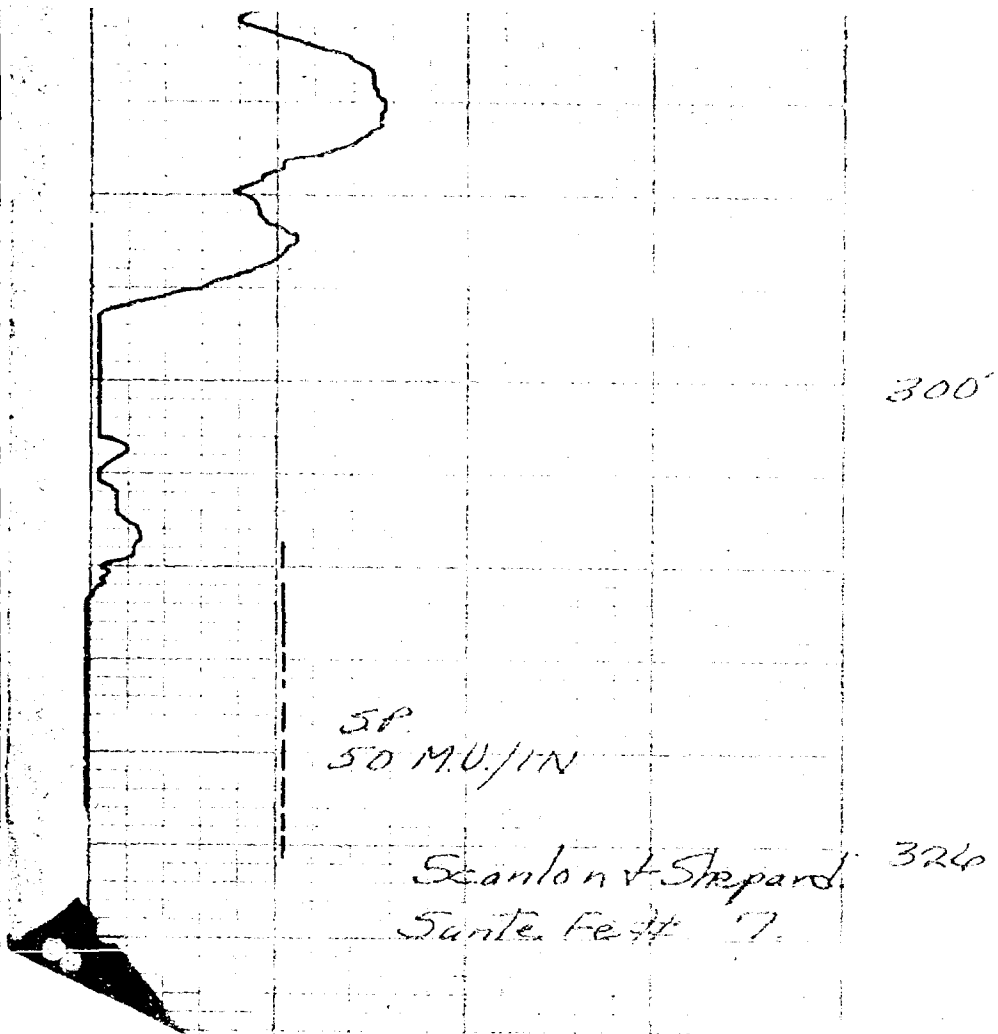 300'
S.P.
50 M.V./IN
Scanlon & Shepard
326
Sante Fe # 7